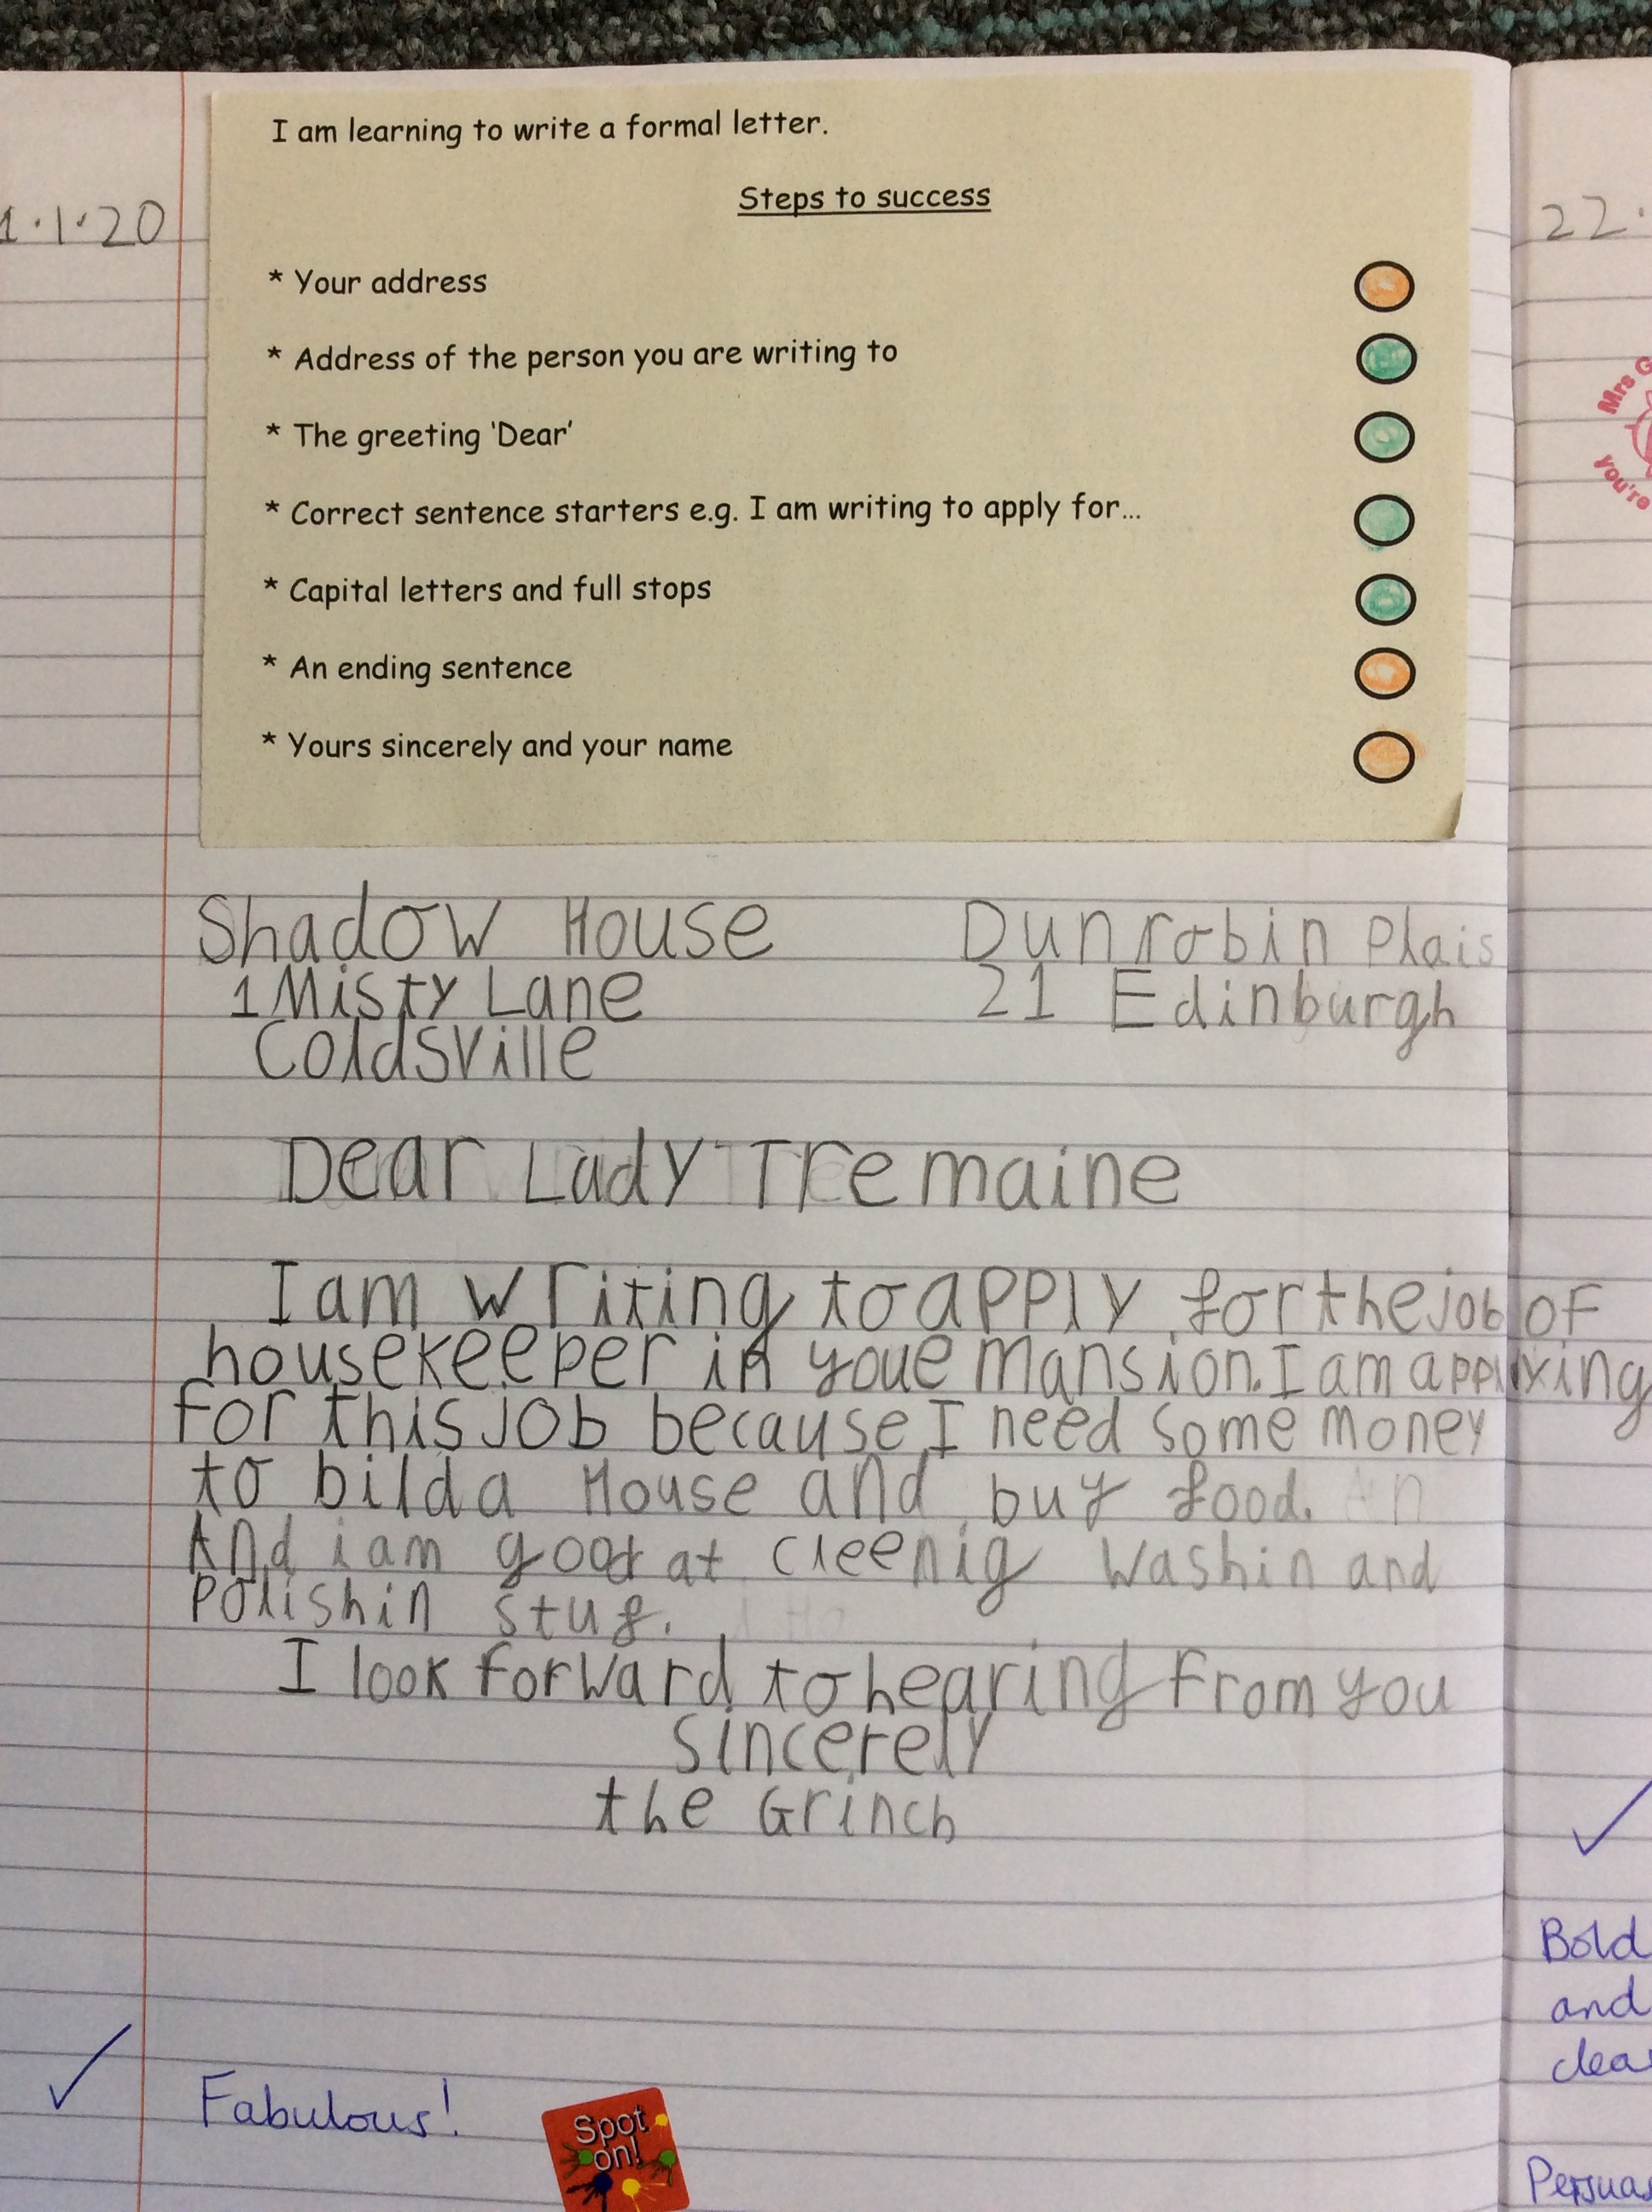 I am learning to write a formal letter.
Steps to success
1.1.20
22.
* Your address
* Address of the person you are writing to
* The greeting 'Dear'
* Correct sentence starters e.g. I am writing to apply for...
* Capital letters and full stops
* An ending sentence
* Yours sincerely and your name
Mrs G
you're
Shadow House Dunrobin Plais
1 Misty Lane 21 Edinburgh
Coldsville
Dear Lady Tremaine
I am writing to apply for the job of
housekeeper in youe mansion. I am applying
for this job because I need some money
to bild a House and buy food.
And i am good at cleenig Washin and
Polishin stuf.
I look forward to hearing from you
sincerely
the Grinch
Fabulous!
Spot
on!
Bold
and
Persuas